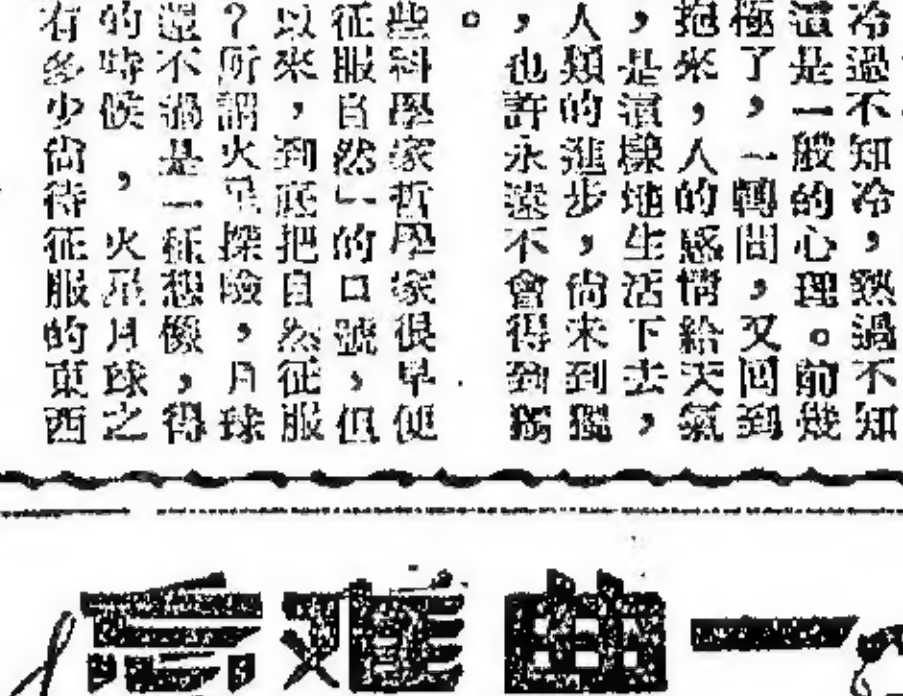 冷過不知冷，熱過不知
這是一般的心理。前幾
極了，一轉間，又回到
抱來，人的感情給天氣
，是這樣地生活下去，
人類的進步，尙未到
，也許永遠不會得到
。
些科學家哲學家很早便
征服自然」的口號，但
以來，到底把自然征服
？所謂火星探險，月球
還不過是一種想像，得
的時候，火星月球之
有多少尙待征服的東西
一曲難